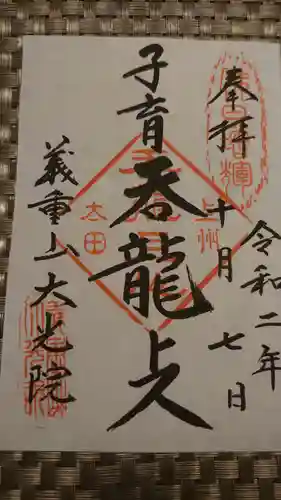 奉拝
令和二年
十月七日
子育呑龍上人
上州
太田
義重山大光院